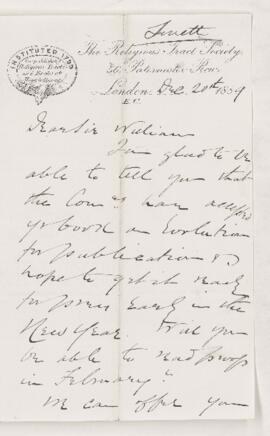 Lovett
INSTITUTED 1799
The Religious Tract Society,
56, Paternoster Row,
London, Dec 20th 1889
E.C.
Dear Sir William
I'm glad to be
able to tell you that
the Com have accepted
yr book on Evolution
for publication & I
hope to get it ready
for press early in the
New Year. Will you
be able to read proofs
in February?
We can offer you